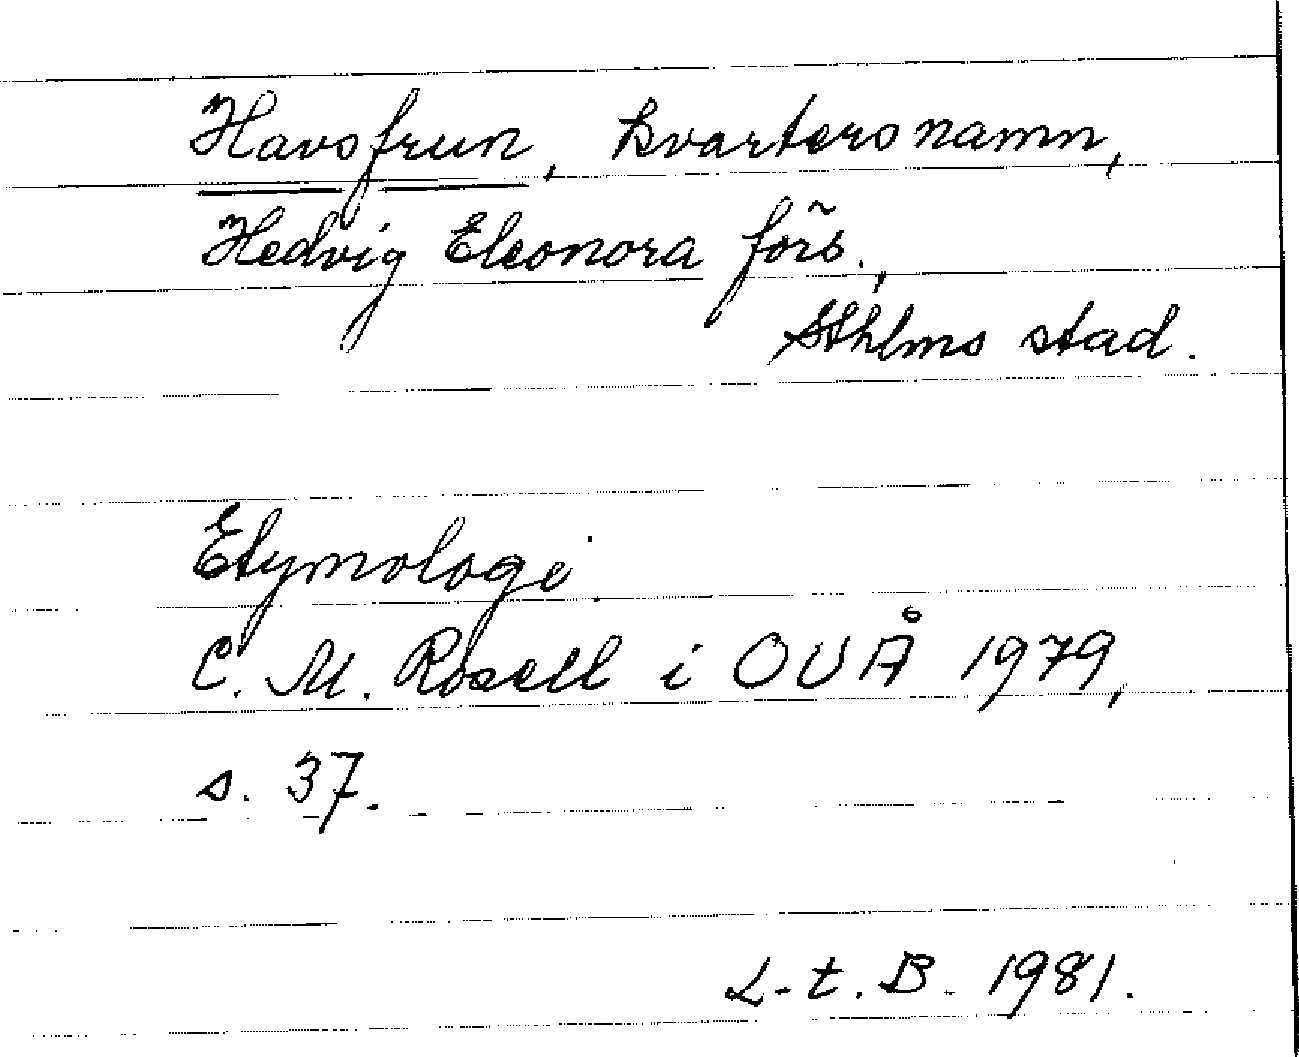 Havsfrun, kvartersnamn,
Hedvig Eleonora förs.,
Sthlms stad.
Etymologi.
C. M. Rosell i OUÅ 1979,
s. 37.
L-t. B. 1981.